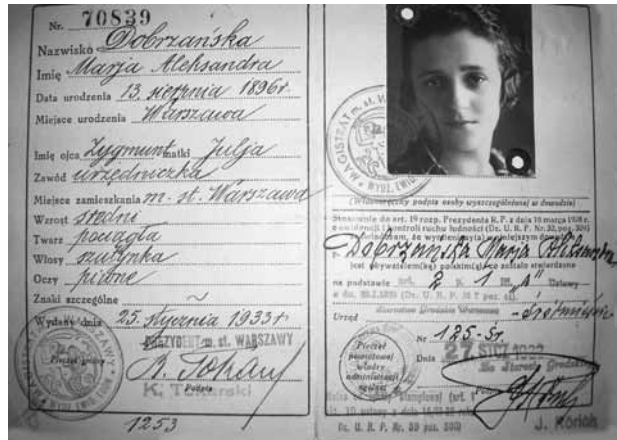 Nr. 70839
Nazwisko Dobrzańska
Imię Marja Aleksandra
Data urodzenia 13. sierpnia 1896 r.
Miejsce urodzenia Warszawa
Imię ojca Zygmunt matki Julja
Zawód urzędniczka
Miejsce zamieszkania m. st. Warszawa
Wzrost średni
Twarz pociągła
Włosy szatynka
Oczy piwne
Znaki szczególne ~
Wydany dnia 25. stycznia 1933 r.
PREZYDENT m. st. WARSZAWY
Pieczęć
Podpis
K. Tokarski
1253
MAGISTRAT m. st.
(Własnoręczny podpis osoby wyszczególnionej w dowodzie)
Stosownie do art. 19 rozp. Prezydenta R. P. z dnia 16 marca 1928 r.
o ewidencji i kontroli ruchu ludności (Dz. U. R. P. Nr. 32, poz. 309)
Dobrzańska Marja Aleksandra
jest obywatelem(ką) polskim(ą), co zostało stwierdzone
na podstawie art. 2 Ustawy
Urząd Starostwo Grodzkie Warszawa - Śródmieście
Nr 125-Śr.
Dnia 27 STYCZ
Pieczęć
powiatowej
władzy
administracji
ogólnej
Za Starostę
J. Kórlich